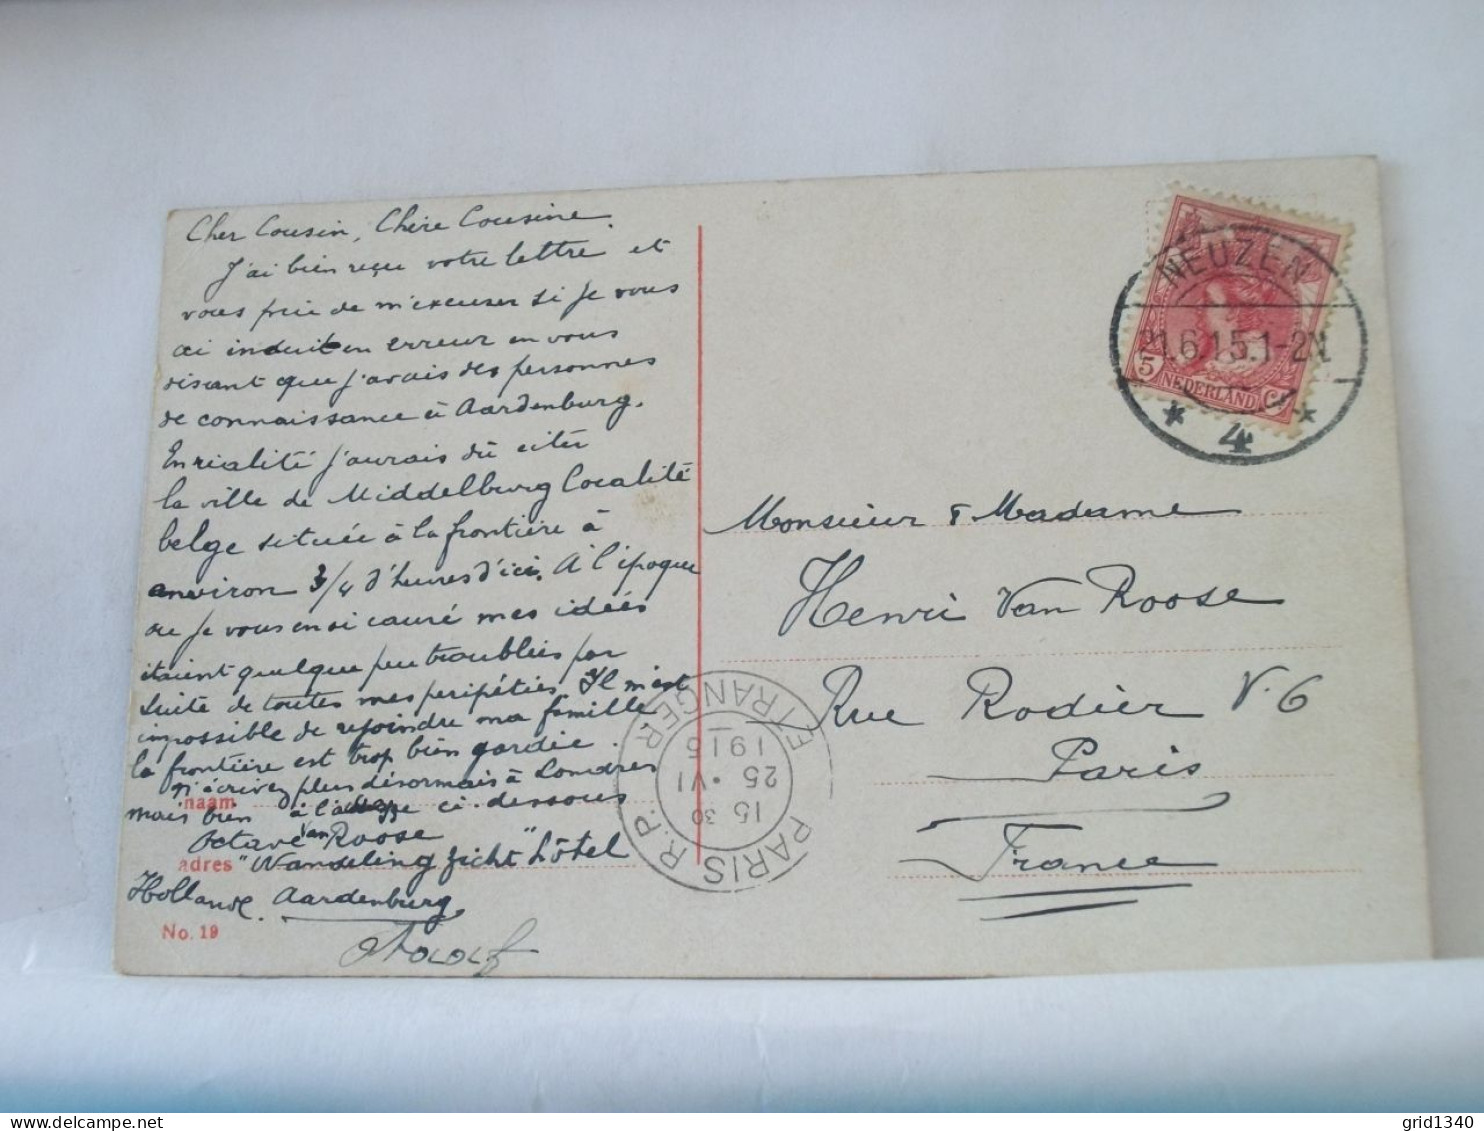 Cher Cousin, Chère Cousine.
J'ai bien reçu votre lettre et
vous prie de m'excuser si je vous
ai induit en erreur en vous
disant que j'avais des personnes
de connaissance à Aardenburg.
En réalité j'aurais dû citer
la ville de Middelburg localité
belge située à la frontière à
environ 3/4 d'heures d'ici. À l'époque
ou je vous en ai causé mes idées
étaient quelque peu troublées par
suite de toutes mes péripéties. Il m'est
impossible de rejoindre ma famille
la frontière est trop bien gardée.
N'écrivez plus désormais à Londres
mais bien à l'adresse ci-dessous
naam
Octave Van Roose
adres "Wandeling zicht" hôtel
Hollande. Aardenburg
No. 19
NEUZEN
21.6.15.1-2N
4
5 NEDERLAND Ct
Monsieur & Madame
Henri Van Roose
Rue Rodier No. 6
Paris
France
PARIS R.P. ETRANGER
15 30
25 · VI
1915
grid1340